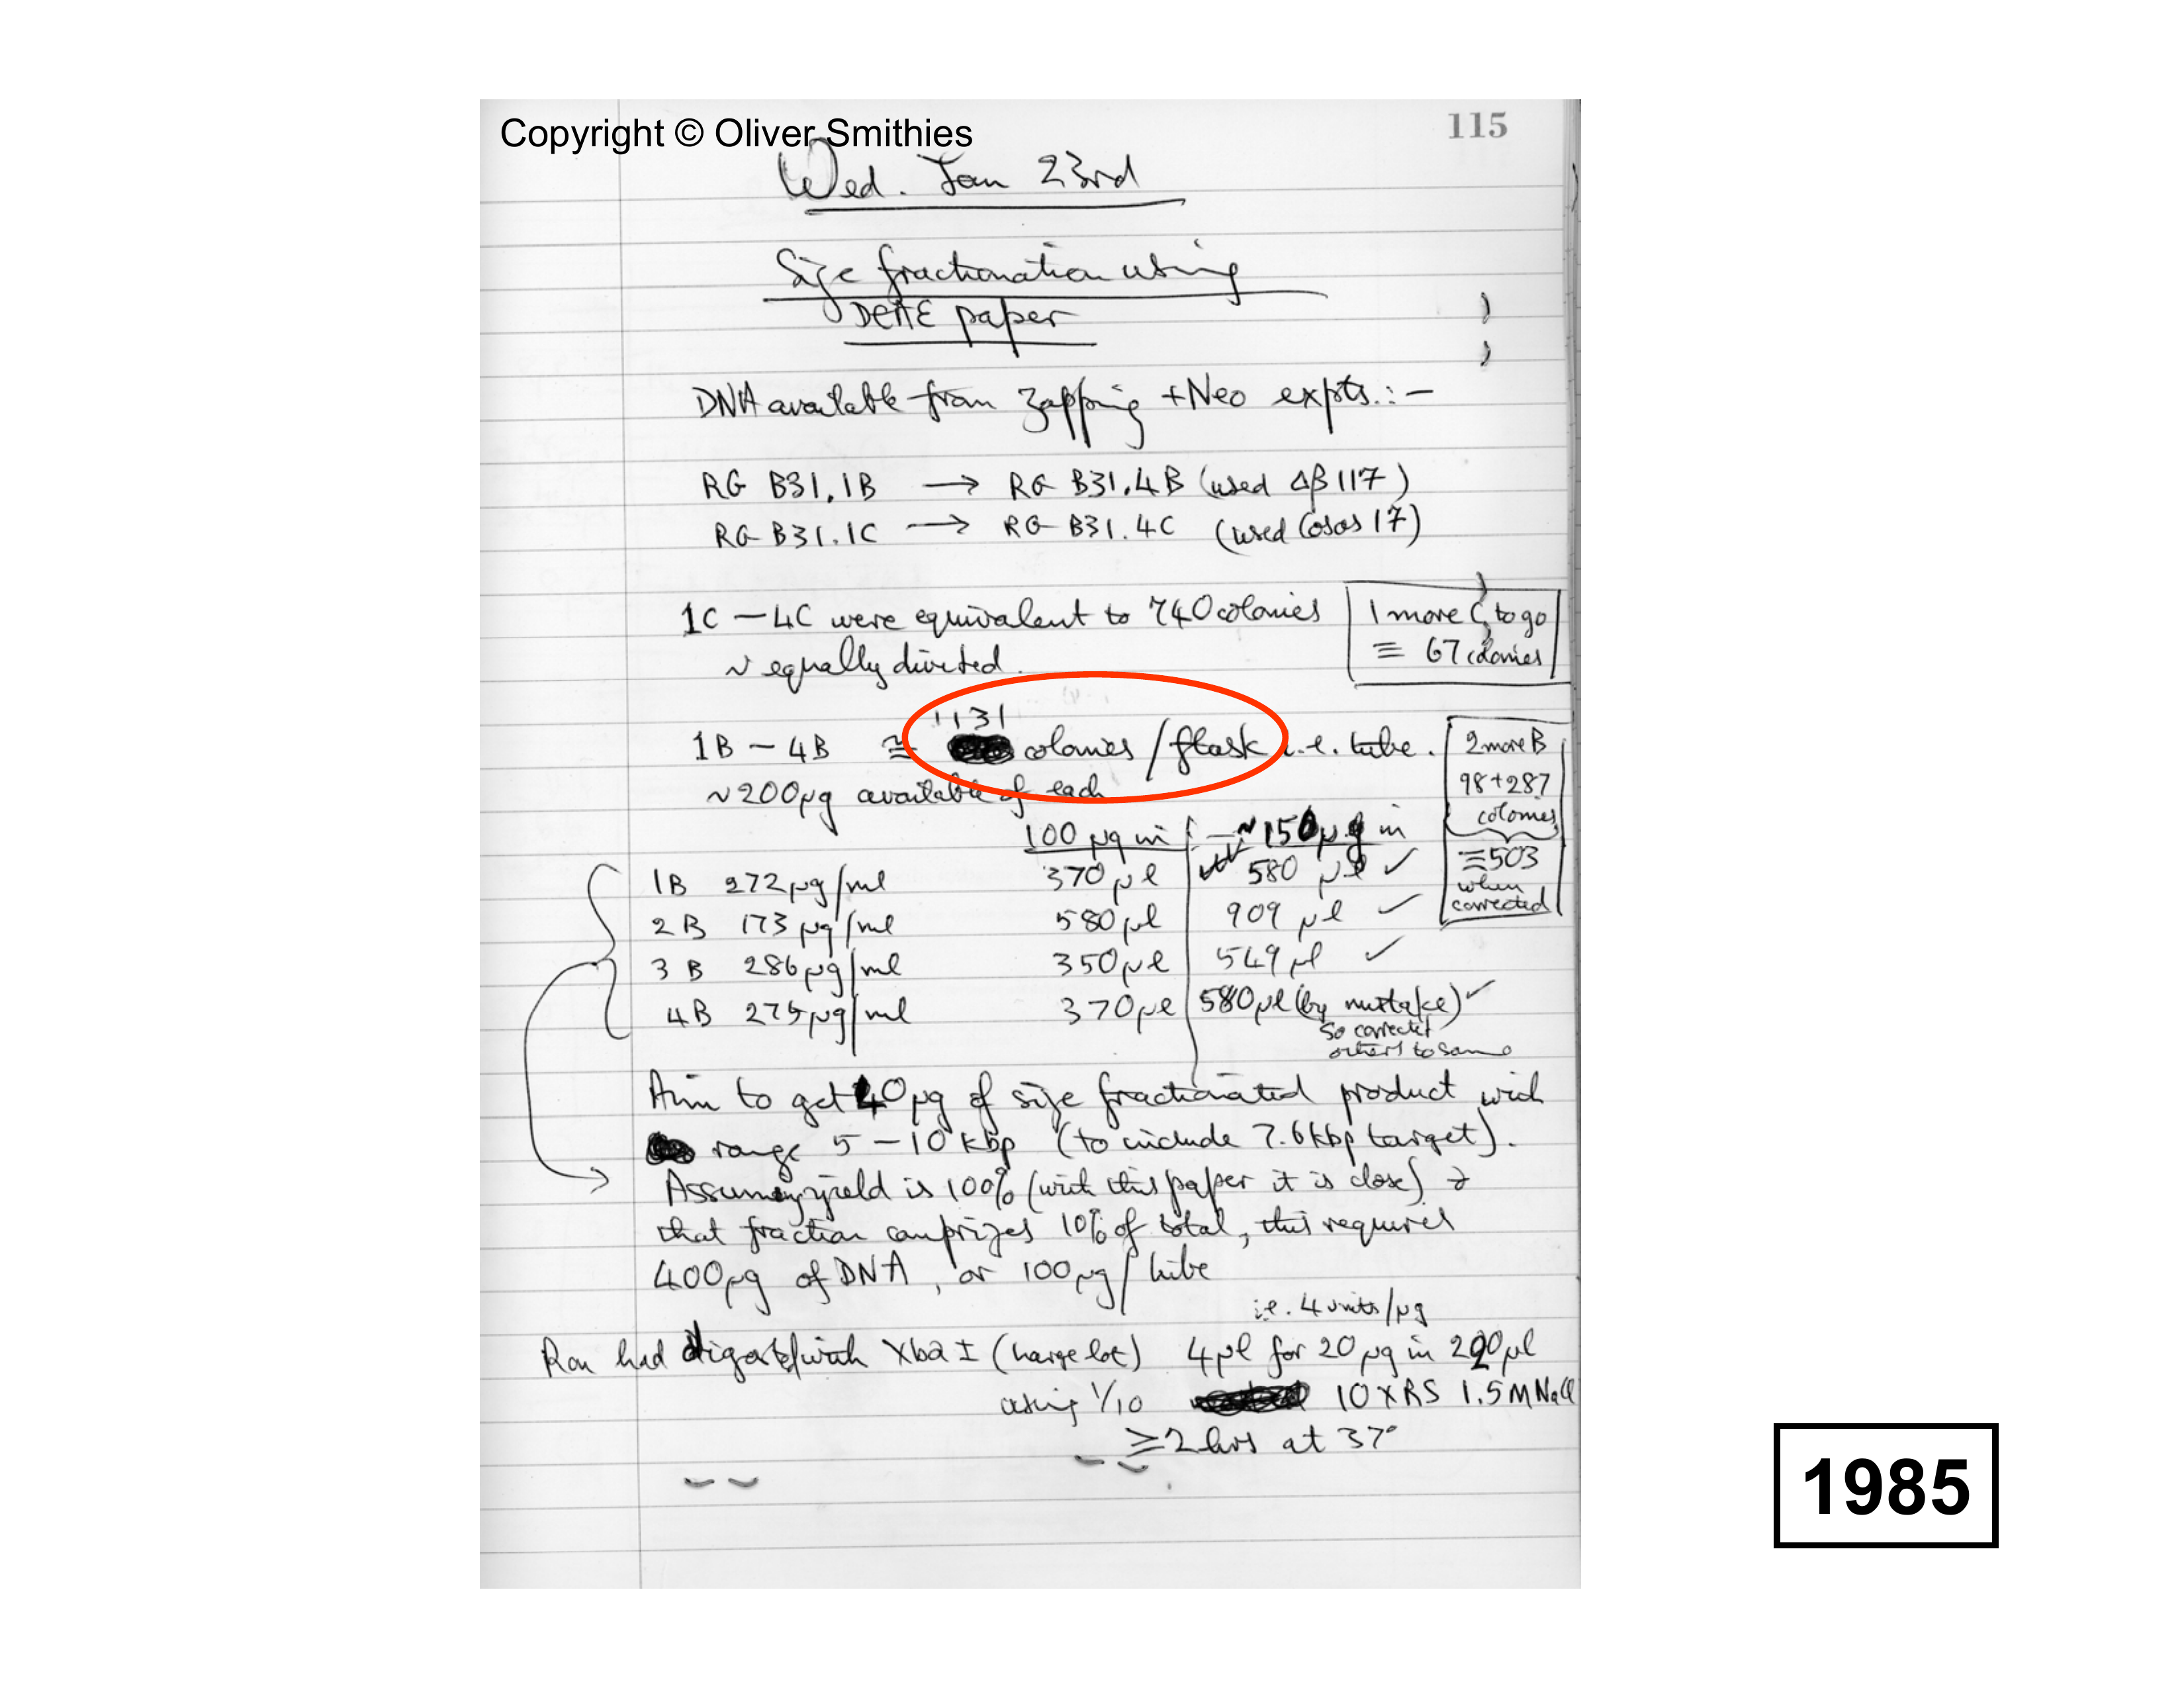 Copyright © Oliver Smithies
115
Wed. Jan 23rd
Size fractionation using
DEAE paper
DNA available from Zapping +Neo expts.:—
RG B31.1B → RG B31.4B (used Δβ117)
RG B31.1C → RG B31.4C (used Cosos 17)
1C – 4C were equivalent to 740 colonies
~ equally divided.
1 more C to go
≡ 67 colonies
1131
1B – 4B ≅ colonies / flask i.e. tube.
~200µg available of each
2 more B
98+287
colonies
≡503
when
corrected
100 µg in ~150µg in
1B 272µg/ml 370µl 580 µl ✓
2B 173µg/ml 580µl 909 µl ✓
3B 286µg/ml 350µl 549µl ✓
4B 275µg/ml 370µl 580µl (by mistake) ✓
So corrected
others to same
Aim to get 40µg of size fractionated product with
range 5–10 kbp (to include 7.6kbp target).
Assuming yield is 100% (with this paper it is close) &
that fraction comprizes 10% of total, this requires
400µg of DNA, or 100µg/tube
i.e. 4 units/µg
Ron had digested with Xba I (large lot) 4µl for 20µg in 200µl
using 1/10 10 x RS 1.5M NaCl
≥2 hrs at 37°
1985